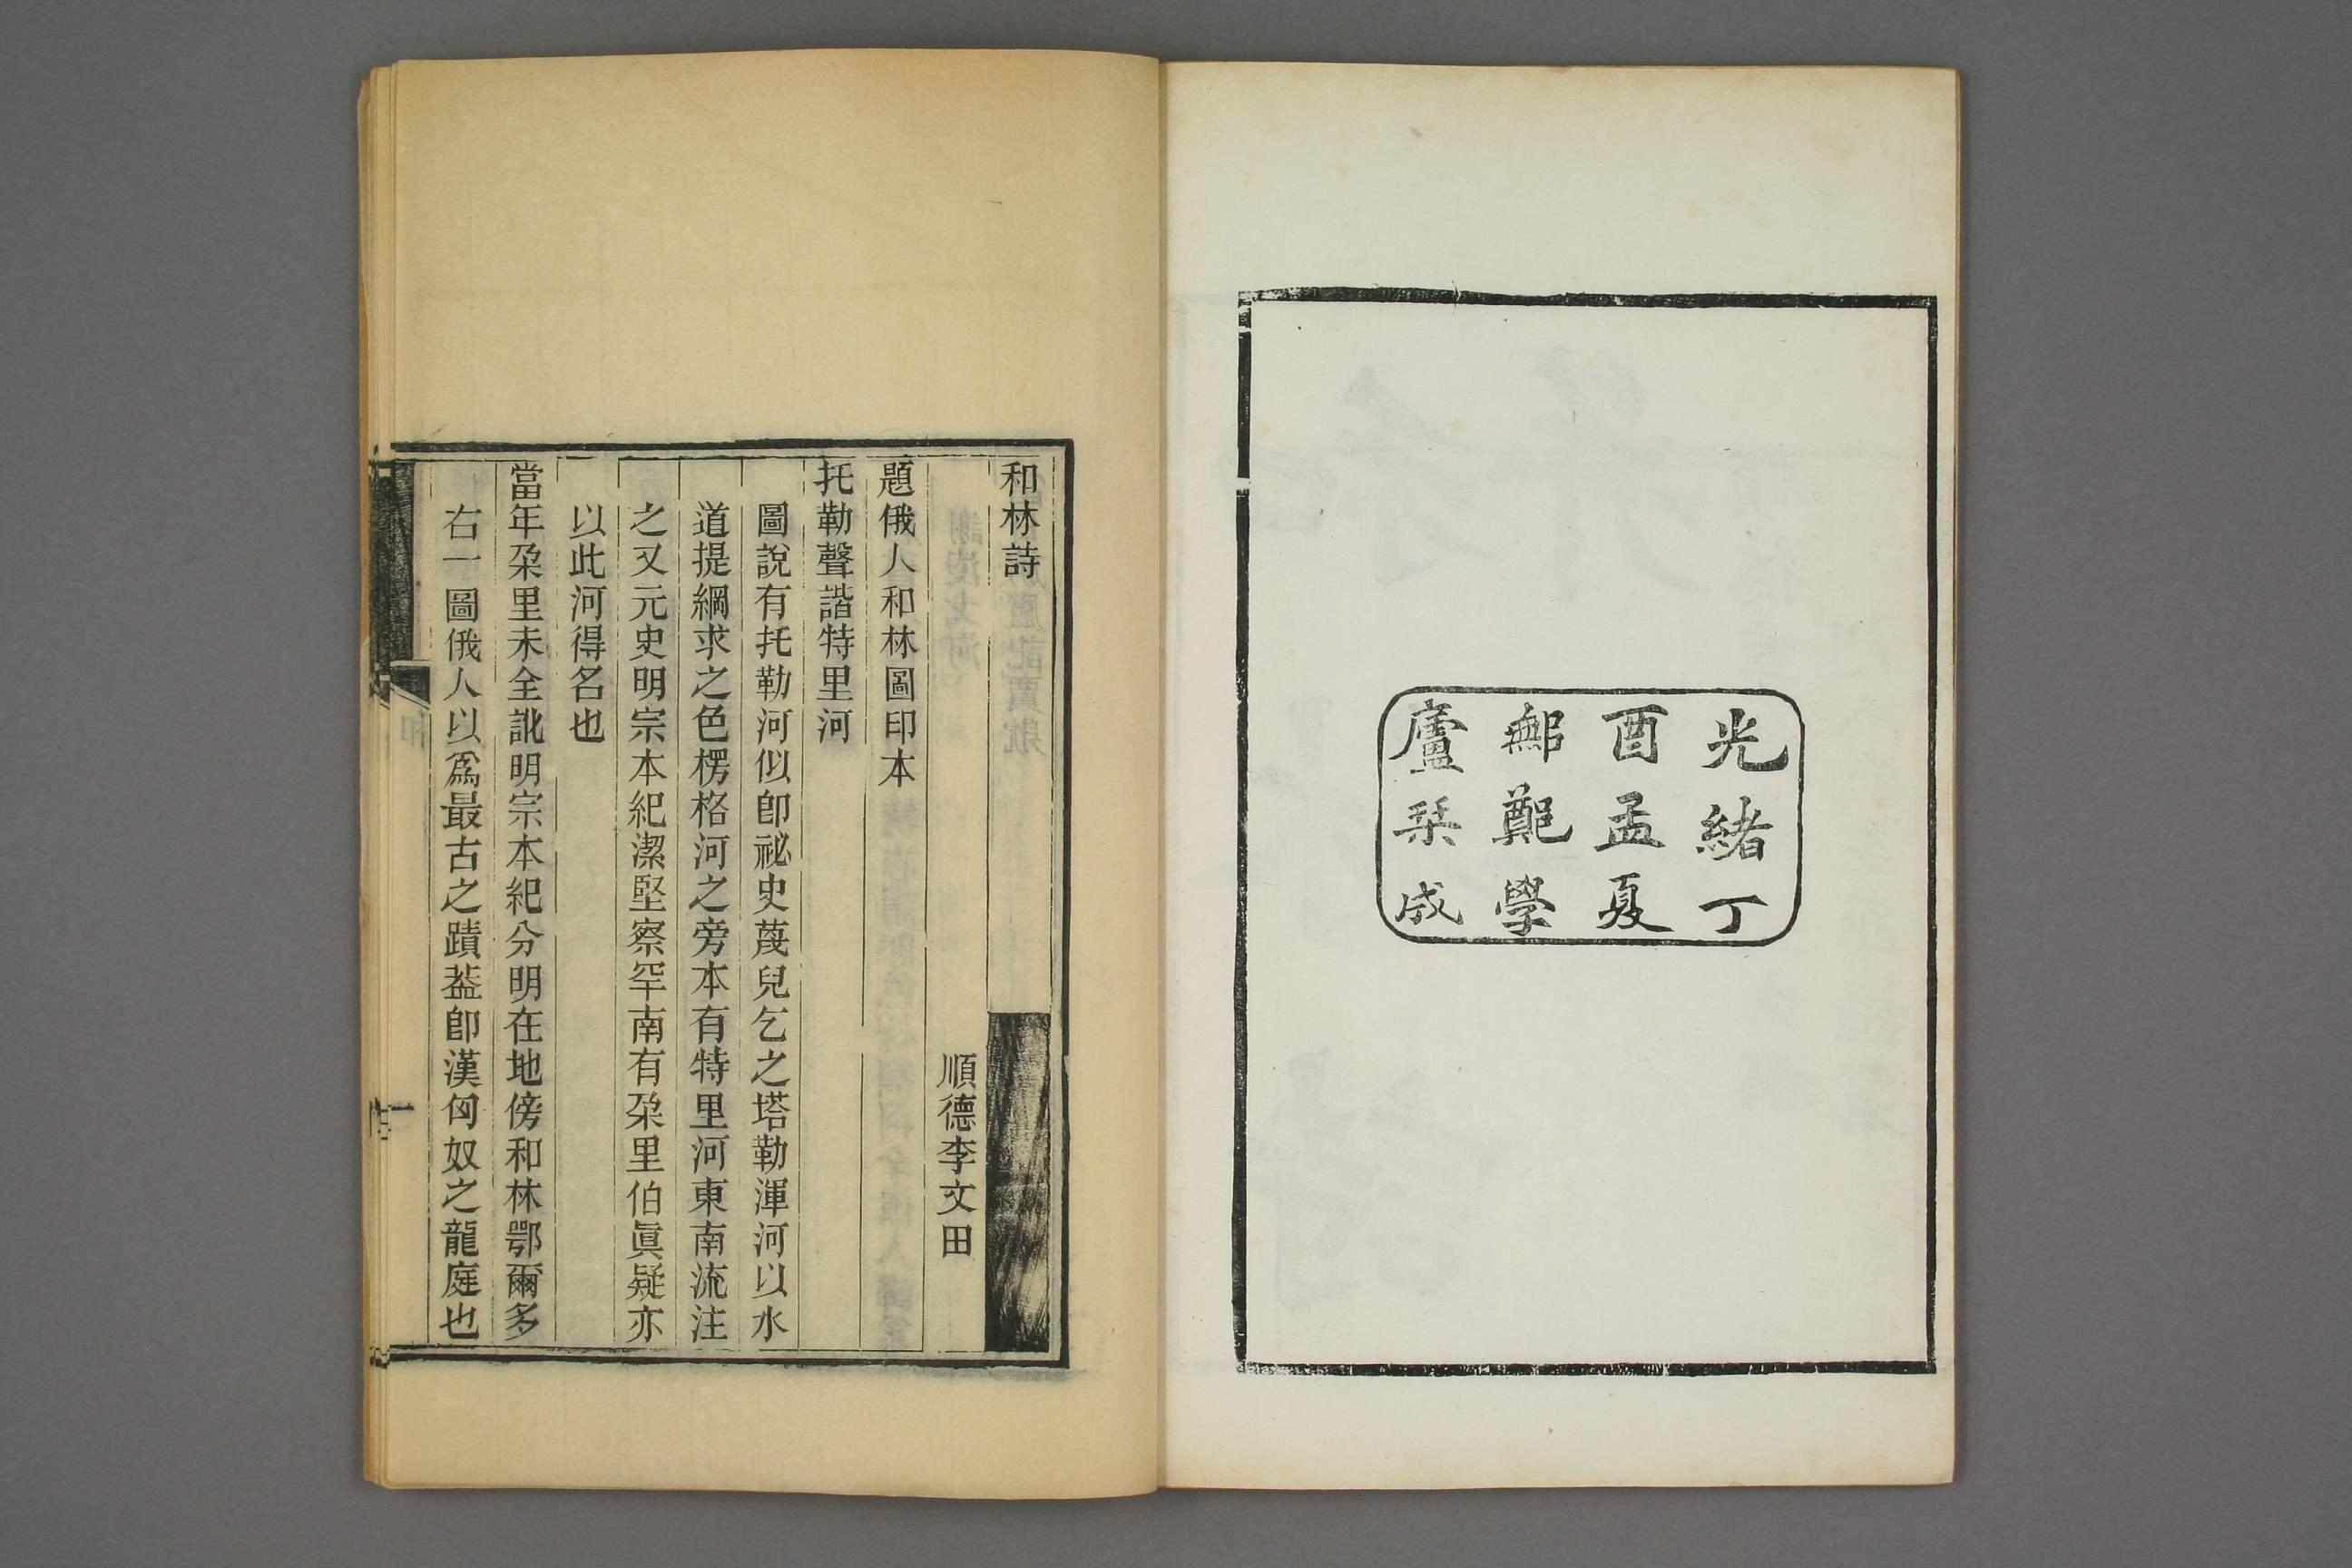 光緒丁
酉孟夏
鄦鄭學
廬栞成
和林詩
順德李文田
題俄人和林圖印本
托勒聲諧特里河
圖說有托勒河似卽祕史蔑兒乞之塔勒渾河以水
道提綱求之色楞格河之旁本有特里河東南流注
之又元史明宗本紀潔堅察罕南有朶里伯眞疑亦
以此河得名也
當年朶里未全訛明宗本紀分明在地傍和林鄂爾多
右一圖俄人以爲最古之蹟葢卽漢匈奴之龍庭也
一